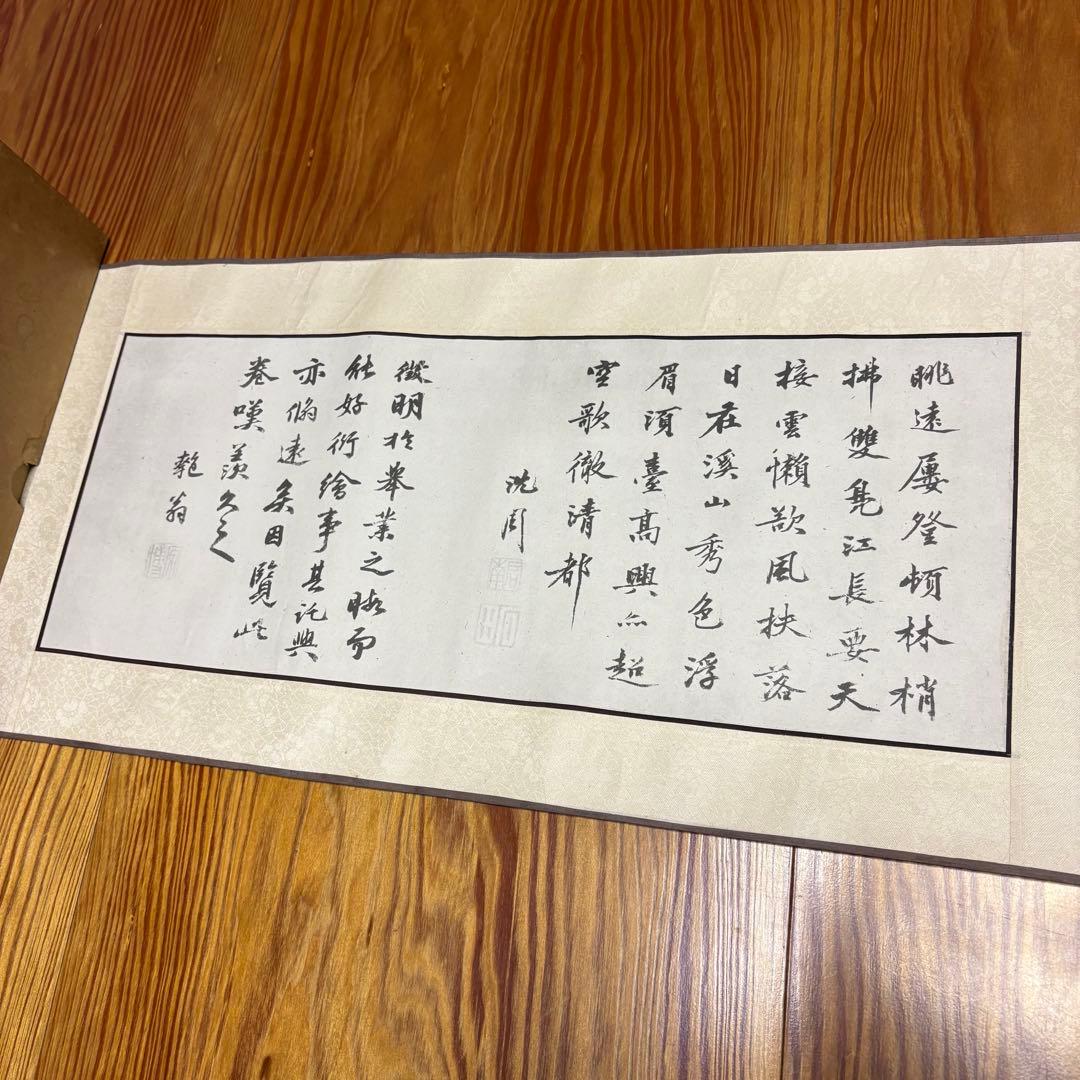 眺遠屢登頓林梢
拂雙鳧江長要天
接雲懶欲風扶落
日在溪山秀色浮
眉須臺高興亦超
空歌徹清都
沈周
徵明於舉業之暇而
能好衍繪事其託興
亦脩遠矣因覽此
卷嘆羨久之
匏翁